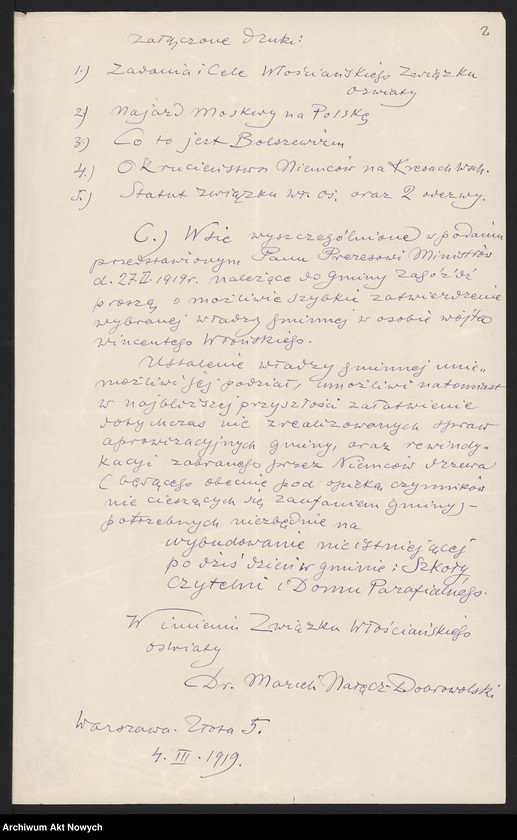 2
załączone druki:
1.) Zadania i Cele Włościańskiego Związku
oświaty
2) Najazd Moskwy na Polskę
3) Co to jest Bolszewizm
4.) Okrucieństwa Niemców na Kresach wsch.
5.) Statut związku wł. oś. oraz 2 odezwy.
C.) Wsie wyszczególnione w podaniu
przedstawionym Panu Prezesowi Ministrów
d. 27.II.1919r. należące do gminy Zagóźdź
proszą o możliwie szybkie zatwierdzenie
wybranej władzy gminnej w osobie wójta
Wincentego Włońskiego.
Ustalenie władzy gminnej unie-
możliwi jej podział, umożliwi natomiast
w najbliższej przyszłości załatwienie
dotychczas nie zrealizowanych spraw
aprowizacyjnych gminy, oraz rewindy-
kacji zabranego przez Niemców drzewa
(będącego obecnie pod opieką czynników
nie cieszących się zaufaniem gminy) -
potrzebnych niezbędnie na
wybudowanie nieistniejącej
po dziś dzień w gminie: Szkoły
Czytelni i Domu Parafialnego.
W imieniu Związku Włościańskiego
oświaty
Dr. Marceli Nałęcz-Dobrowolski
Warszawa. Złota 5.
4. III. 1919.
Archiwum Akt Nowych